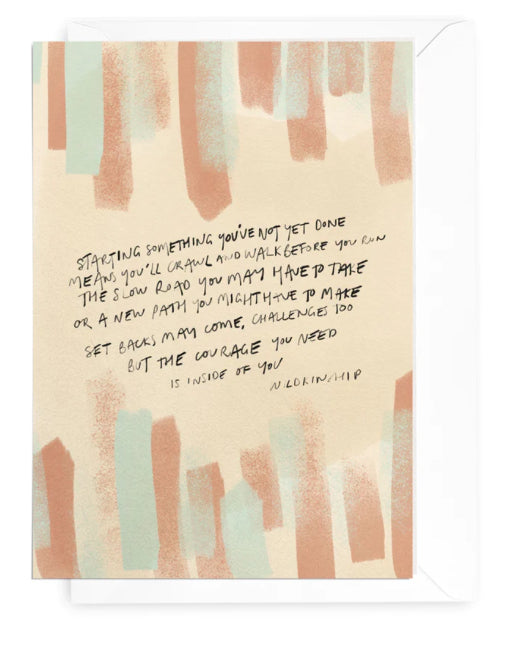 STARTING SOMETHING YOU'VE NOT YET DONE
MEANS YOU'LL CRAWL AND WALK BEFORE YOU RUN
THE SLOW ROAD YOU MAY HAVE TO TAKE
OR A NEW PATH YOU MIGHT HAVE TO MAKE
SET BACKS MAY COME, CHALLENGES TOO
BUT THE COURAGE YOU NEED
IS INSIDE OF YOU